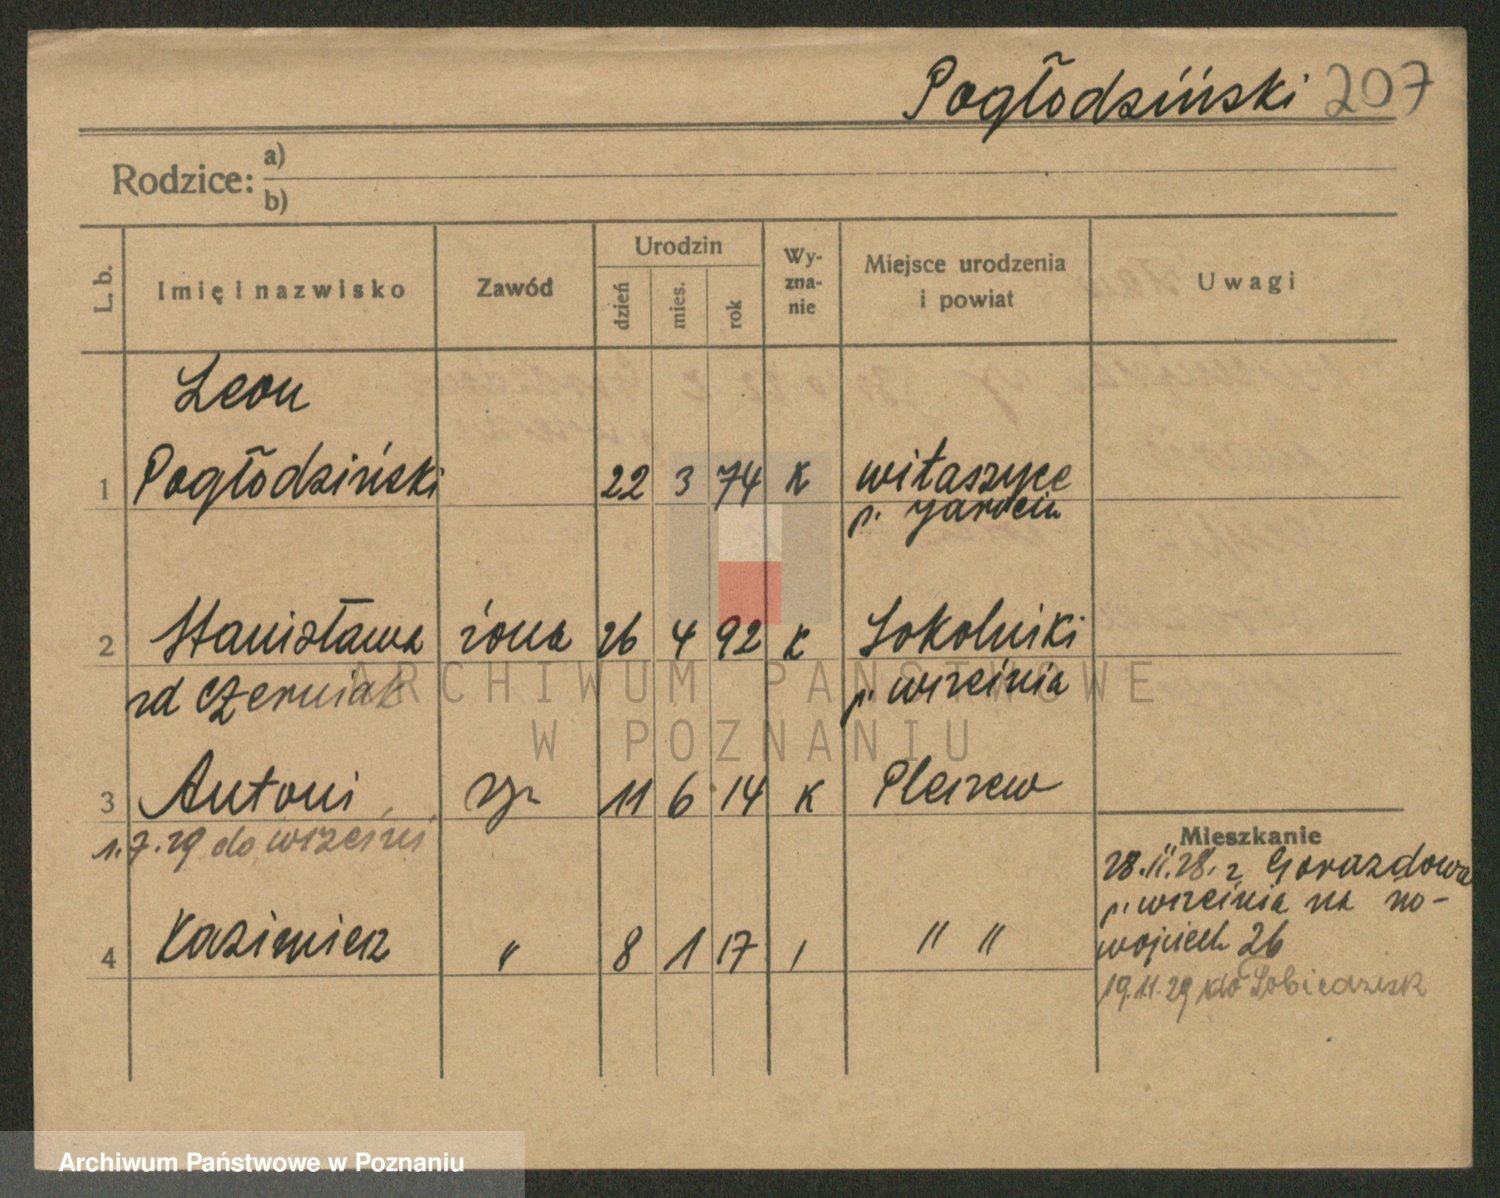 Pogłodziński 207
Rodzice: a)
b)
L. b.
Imię i nazwisko
Zawód
Urodzin
dzień
mies.
rok
Wy-
zna-
nie
Miejsce urodzenia
i powiat
Uwagi
Leon
1 Pogłodziński 22 3 74 K witaszyce
p. Jarocin
2 Stanisława żona 26 4 92 K Sokolniki
rd Czerniak p. września
3 Antoni sy. 11 6 14 K Pleszew
1.7.29 do wrześni
Mieszkanie
28.11.28. z Gorazdowa
p. września na no-
wojciech 26
4 Kazimierz " 8 1 17 " " "
19.11.29 do
ARCHIWUM PAŃSTWOWE
W POZNANIU
Archiwum Państwowe w Poznaniu